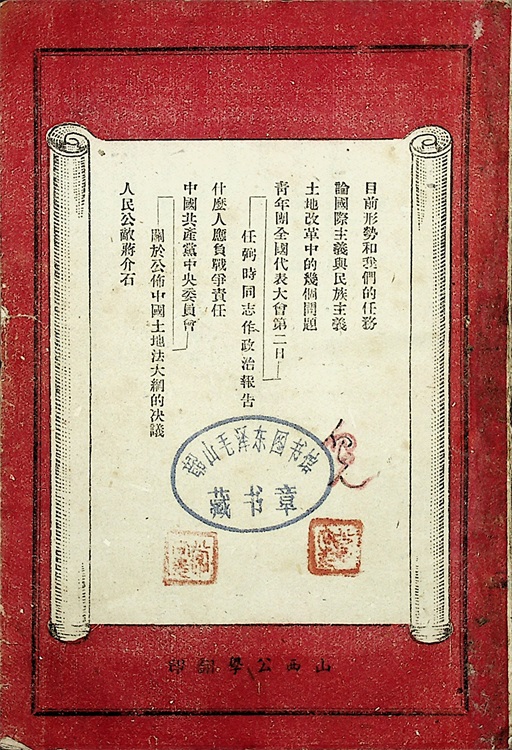 目前形勢和我們的任務
論國際主義與民族主義
土地改革中的幾個問題
青年團全國代表大會第二日
任弼時同志作政治報告
什麼人應負戰爭責任
中國共產黨中央委員會
關於公佈中國土地法大綱的決議
人民公敵蔣介石
韶山毛泽东图书馆
藏书章
山西公學翻印